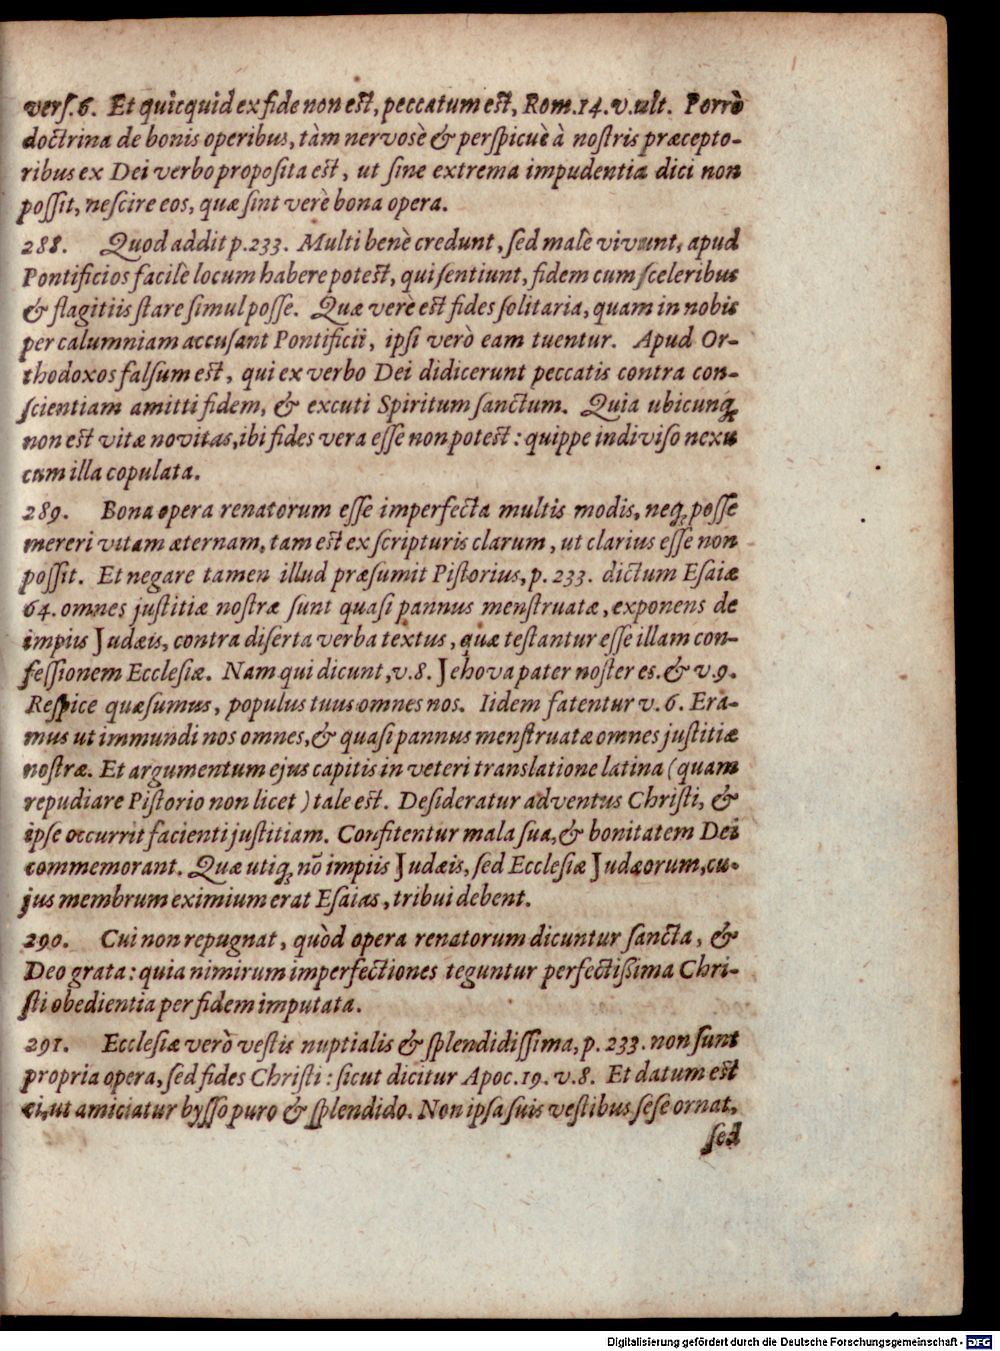 verſ.6. Et quicquid ex fide non est, peccatum est, Rom.14.v.ult. Porrò
doctrina de bonis operibus, tàm nervosè & perſpicuè à noſtris præcepto-
ribus ex Dei verbo propoſita est, ut ſine extrema impudentia dici non
poſſit, neſcire eos, quæ ſint verè bona opera.
288. Quod addit p.233. Multi benè credunt, ſed malè vivunt, apud
Pontificios facilè locum habere potest, qui ſentiunt, fidem cum ſceleribus
& flagitiis ſtare ſimul poſſe. Quæ verè est fides ſolitaria, quam in nobis
per calumniam accuſant Pontificii, ipſi verò eam tuentur. Apud Or-
thodoxos falſum est, qui ex verbo Dei didicerunt peccatis contra con-
ſcientiam amitti fidem, & excuti Spiritum ſanctum. Quia ubicunq;
non est vitæ novitas, ibi fides vera eſſe non potest: quippe indiviſo nexu
cum illa copulata.
289. Bona opera renatorum eſſe imperfecta multis modis, neq; poſſe
mereri vitam æternam, tam est ex ſcripturis clarum, ut clarius eſſe non
poſſit. Et negare tamen illud præſumit Piſtorius, p.233. dictum Eſaiæ
64. omnes juſtitiæ noſtræ ſunt quaſi pannus menſtruatæ, exponens de
impiis Judæis, contra diſerta verba textus, quæ teſtantur eſſe illam con-
feſſionem Eccleſiæ. Nam qui dicunt, v.8. Jehova pater noſter es. & v.9.
Reſpice quæſumus, populus tuus omnes nos. Iidem fatentur v.6. Era-
mus ut immundi nos omnes, & quaſi pannus menſtruatæ omnes juſtitiæ
noſtræ. Et argumentum ejus capitis in veteri translatione latina (quam
repudiare Piſtorio non licet) tale est. Deſideratur adventus Chriſti, &
ipſe occurrit facienti juſtitiam. Confitentur mala ſua, & bonitatem Dei
commemorant. Quæ utiq; nō impiis Judæis, ſed Eccleſiæ Judæorum, cu-
jus membrum eximium erat Eſaias, tribui debent.
290. Cui non repugnat, quòd opera renatorum dicuntur ſancta, &
Deo grata: quia nimirum imperfectiones teguntur perfectißima Chri-
ſti obedientia per fidem imputata.
291. Eccleſiæ verò veſtis nuptialis & ſplendidiſſima, p.233. non ſunt
propria opera, ſed fides Chriſti: ſicut dicitur Apoc.19.v.8. Et datum est
ei, ut amiciatur byſſo puro & ſplendido. Non ipſa ſuis veſtibus ſeſe ornat,
ſed
Digitalisierung gefördert durch die Deutsche Forschungsgemeinschaft - DFG